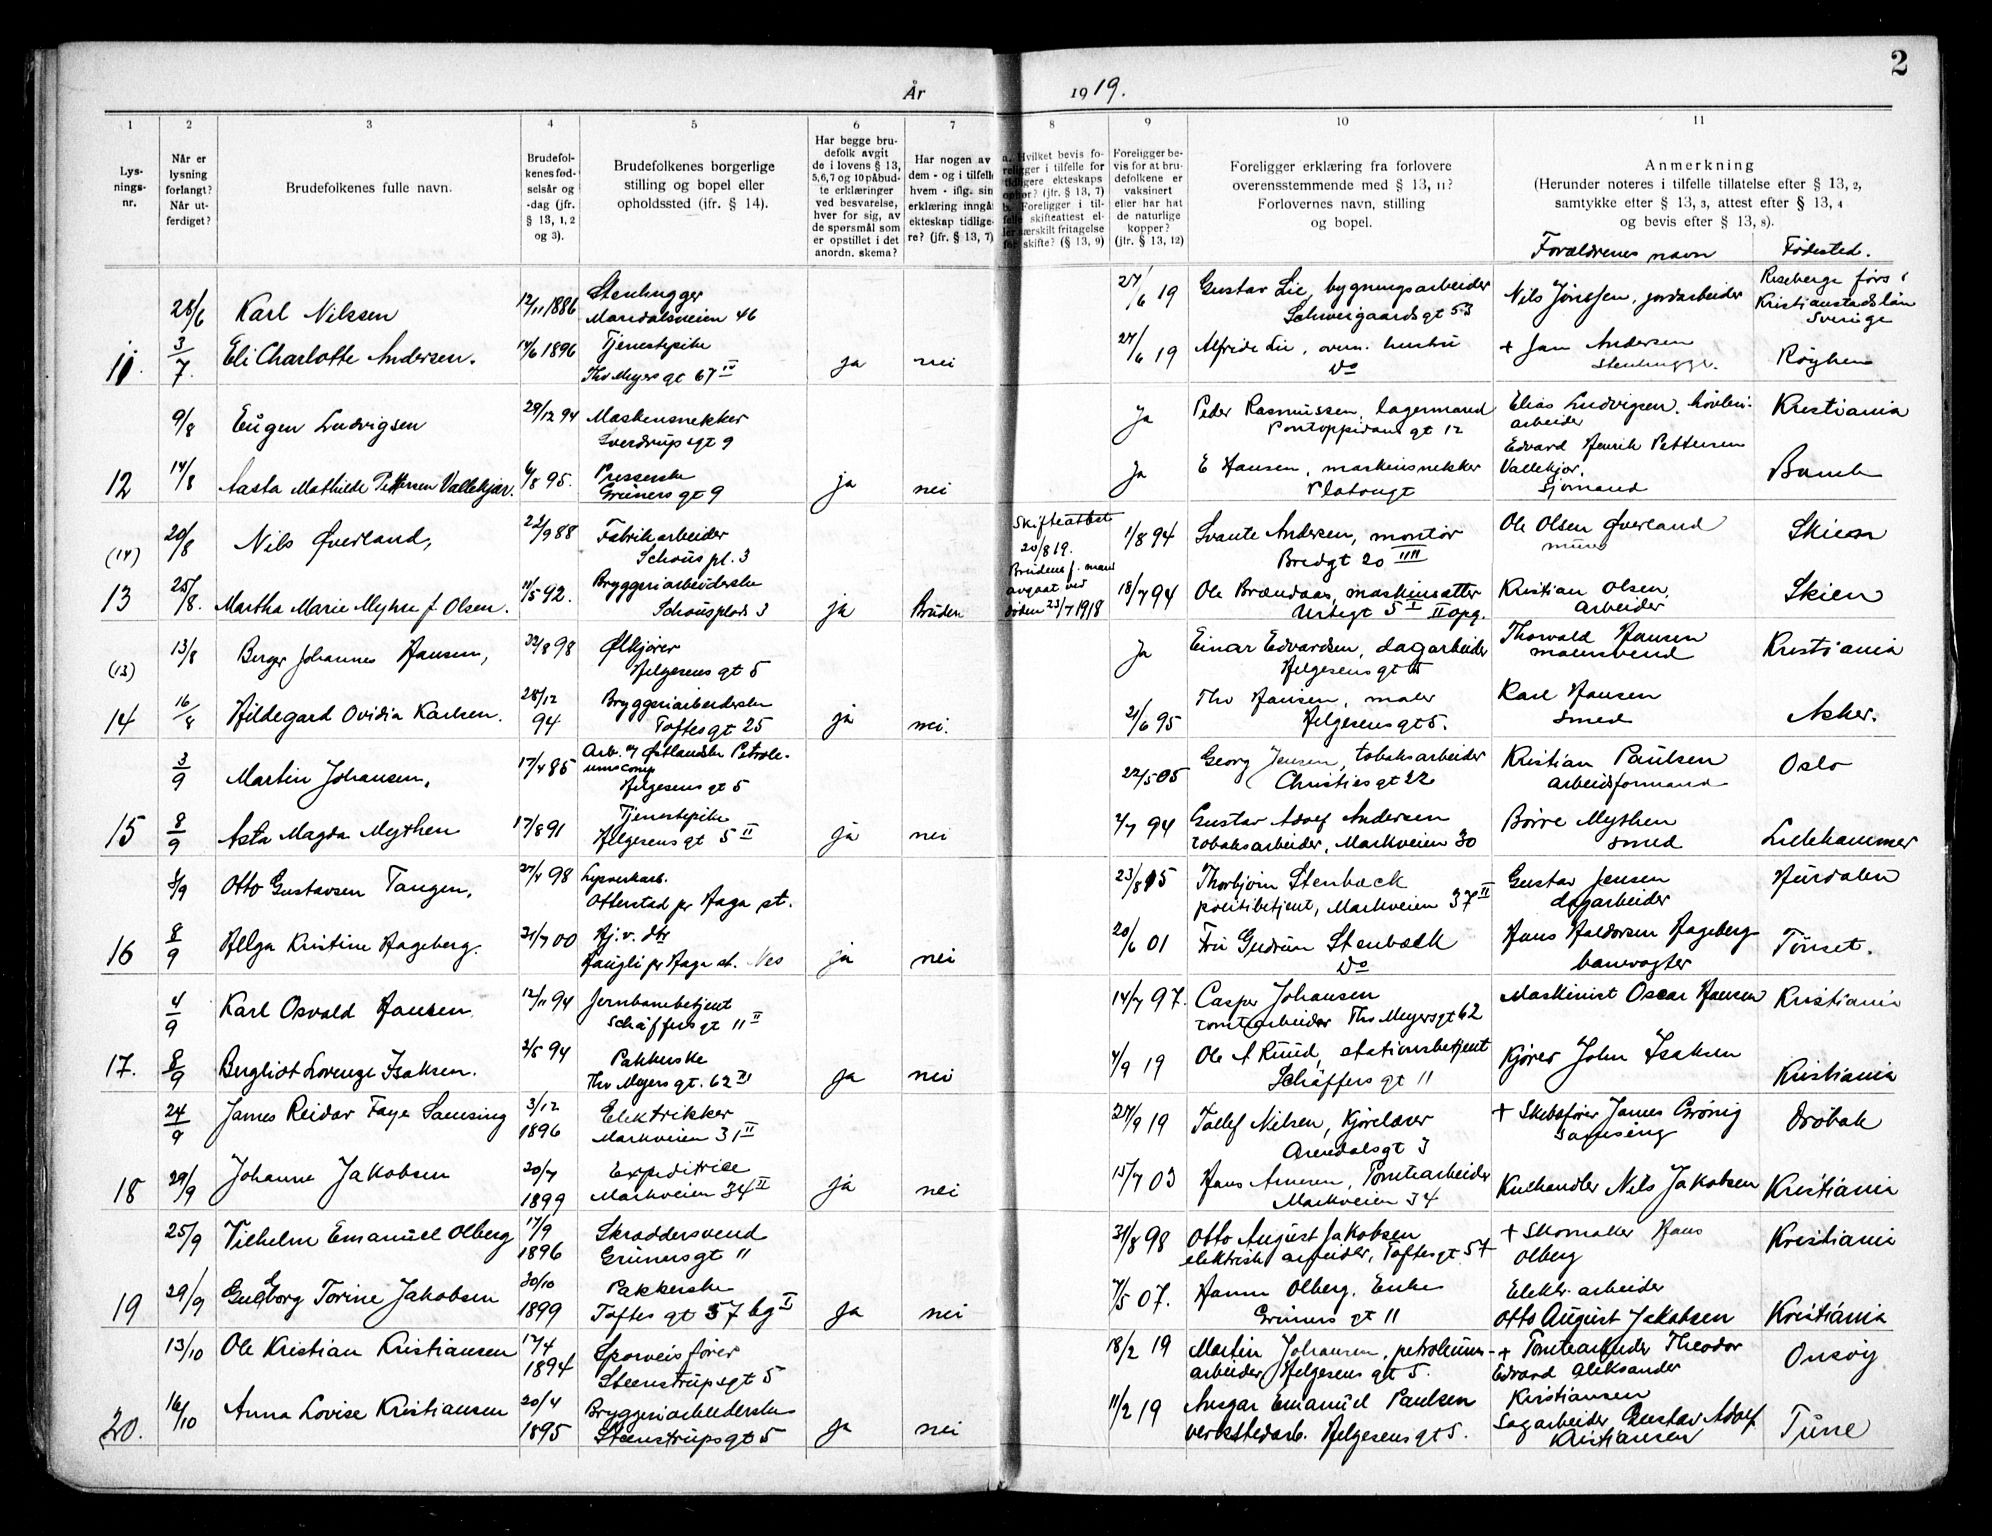 2
År 1919.
1 2 3 4 5 6 7 8 9 10 11
Lysningsnr.
Når er lysning forlangt? Når utferdiget?
Brudefolkenes fulle navn.
Brudefolkenes fødselsår og -dag (jfr. § 13, 1, 2 og 3).
Brudefolkenes borgerlige stilling og bopel eller opholdssted (jfr. § 14).
Har begge brudefolk avgit de i lovens § 13, 5, 6, 7 og 10 påbudte erklæringer ved besvarelse, hver for sig, av de spørsmål som er opstillet i det anordn. skema?
Har nogen av dem - og i tilfelle hvem - iflg. sin erklæring inngåt ekteskap tidligere? (jfr. § 13, 7)
a. Hvilket bevis foreligger i tilfelle for tidligere ekteskaps ophør? (jfr. § 13, 7)
b. Foreligger i tilfelle skifteattest eller særskilt fritagelse for skifte? (§ 13, 9)
Foreligger bevis for at brudefolkene er vaksinert eller har hat de naturlige kopper? (jfr. § 13, 12)
Foreligger erklæring fra forlovere overensstemmende med § 13, 11? Forlovernes navn, stilling og bopel.
Anmerkning
(Herunder noteres i tilfelle tillatelse efter § 13, 2, samtykke efter § 13, 3, attest efter § 13, 4 og bevis efter § 13, 8).
Forældrenes navn Fødested.
28/6 Karl Nilssen 12/11 1886 Stenhugger Maridalsveien 46 27/6 19 Gustav Lie, bygningsarbeider Schweigaards gt 53 Nils Jönssen, jordarbeider Riseberga förs i Kristianstads län Sverige
11. 3/7. Eli Charlotte Andersen. 14/6 1896 Tjenestepike Thv Meyers gt 67 IV ja nei 27/6 19 Alfride Lie, hustru Do + Jan Andersen Stenhugger. Røyken
9/8 Eugen Ludvigsen 29/12 94 Maskinsnekker Sverdrups gt 9 Ja Peder Rasmussen, lagermand Pontoppidans gt 12 Elias Ludvigsen, høvleriarbeider Kristiania
12 14/8 Aasta Mathilde Pettersen Vallekjær. 6/8 95. Presserske Grüners gt 9 ja nei Ja E Hansen, maskinsnekker Platous gt Edvard Henrik Pettersen Vallekjær. Sjømand Bamle
(14) 20/8 Nils Øverland, 22/9 88 Fabrikarbeider Schous pl. 3 Skifteattest 20/8 19. 1/8 94 Svante Andersen, montør Bredgt 20 IIII Ole Olsen Øverland murer Skien
13 25/8. Martha Marie Myhre f. Olsen. 11/5 92. Bryggeriarbeiderske Schousplads 3 ja Bruden Brudens f. mand avgaat ved døden 23/7 1918 18/7 94 Ole Brændaas, maskinsætter Urtegt 5 I II opg. Kristian Olsen, arbeider Skien
(13) 13/8 Berger Johannes Hansen, 22/8 98 Ølkjører Helgesens gt 5 Ja Einar Edvardsen, dagarbeider Helgesens gt 5 Thorvald Hansen malersvend Kristiania
14 16/8 Hildegard Ovidia Karlsen. 28/12 94 Bryggeriarbeiderske Toftes gt 25 ja nei. 21/6 95 Thv Hansen, maler Helgesens gt 5. Karl Hansen Smed Asker.
3/9 Martin Johansen, 17/4 85 Arb. v Østlandske Petroleumscomp Helgesens gt 5 22/5 05 Georg Jensen, tobaksarbeider Christies gt 22 Kristian Paulsen arbeidsformand Oslo
15 8/9 Asta Magda Mythen 17/8 91 Tjenestepike Helgesens gt 5 II ja nei 2/7 94 Gustav Adolf Andersen tobaksarbeider, Markveien 30 Børre Mythen smed Lillehammer
8/9 Otto Gustavsen Tangen, 27/4 98 Lysverkarb. Otterstad pr Haga st. 23/8 15 Thorbjørn Stenbæck politibetjent, Markveien 37 II Gustav Jensen dagarbeider Hurdalen
16 8/9 Helga Kristine Hageberg. 21/7 00 Hj. v. dtr Haugli pr Haga st. Nes ja nei 20/6 01 Fru Gudrun Stenbæck Do Hans Haldorsen Hageberg banevogter Tönset.
4/9 Karl Osvald Hansen 12/11 94 Jernbanebetjent Schäffers gt 11 II 14/7 97. Casper Johansen tomtearbeider Thv Meyersgt 62 Maskinist Oscar Hansen Kristiania
17. 8/9 Bergliot Lorenze Isaksen. 2/5 94 Pakkerske Thv Meyers gt. 62 ja nei 4/9 19 Ole A Ruud, stationsbetjent Schäffers gt 11 Kjører John Isaksen Kristiania
24/9 James Reidar Faye Samsing 3/12 1896 Elektrikker Markveien 31 II 27/9 19 Tollef Nilsen, Kjørelærer Arendalsgt 3 + Skibsfører James Grönig Samsing Drøbak
18 29/9 Johanne Jakobsen 20/7 1899 Expeditrice Markveien 34 II ja nei 15/7 03 Hans Arnesen, Tomtearbeider Markveien 34 Kulhandler Nils Jakobsen Kristiania
25/9 Vilhelm Emanuel Olberg 17/9 1896 Skræddersvend Grünersgt 11 31/8 98 Otto August Jakobsen elektrisk arbeider, Toftes gt 57 + Skomaker Hans Olberg Kristiania
19 29/9 Gudborg Torine Jakobsen 30/10 1899 Pakkerske Toftes gt 57 bg I ja nei 7/5 07. Hanna Olberg, Enke Grüners gt 11 Elektr. arbeider Otto August Jakobsen Kristiania
13/10 Ole Kristian Kristiansen 17/4 1894 Sporveisfører Steenstrups gt 5 18/2 19 Martin Johansen, petroleumsarbeider Helgesens gt 5. + Tomtearbeider Theodor Edvard Aleksander Kristiansen Onsøy
20. 16/10 Anna Lovise Kristiansen 20/4 1895 Bryggeriarbeiderske Steenstrupsgt 5 ja nei 11/2 19 Ansgar Emanuel Paulsen verkstedarb. Helgesens gt 5. Sagarbeider Gustav Adolf Kristiansen Tune